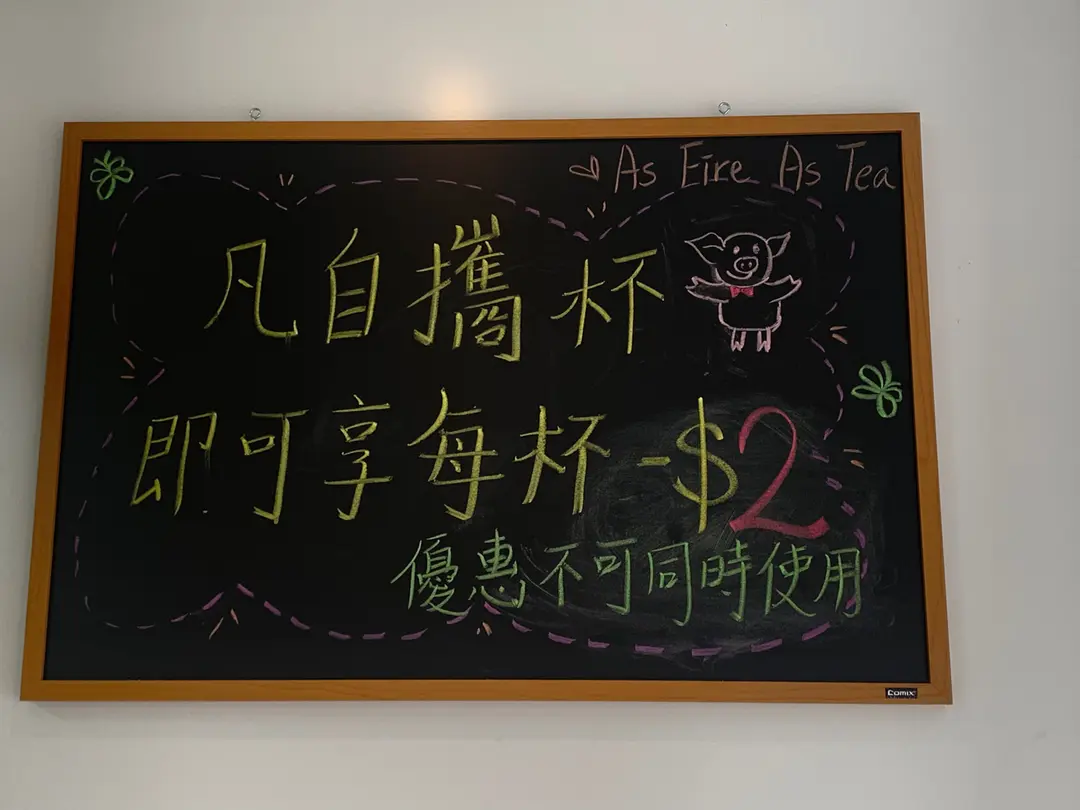 As Fire As Tea
凡自攜杯
即可享每杯 -$2
優惠不可同時使用
Comix